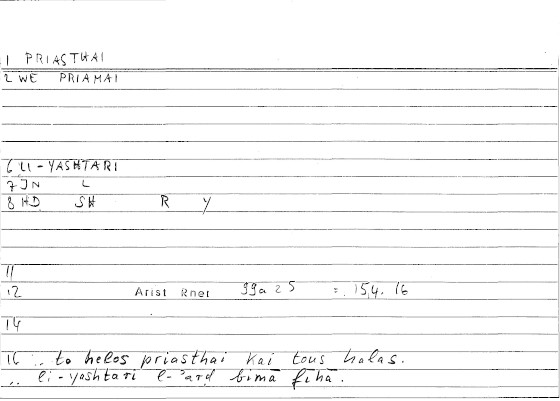 1 PRIASTHAI
2 WE PRIAMAI
6 LI-YASHTARI
7 IN L
8 HD SH R Y
11
12 Arist Rhet 99a 25 = 154, 16
14
16 .. to helos priasthai kai tous halas.
.. li-yashtari l-ʾarḍ bimā fīhā.